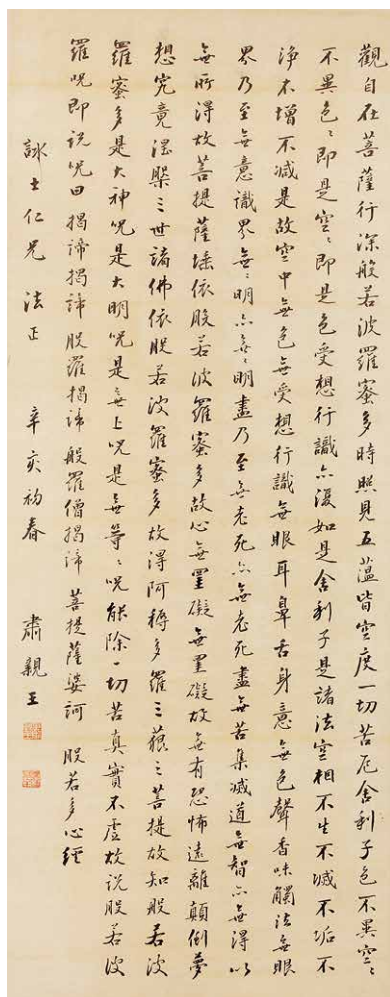 觀自在菩薩行深般若波羅蜜多時照見五蘊皆空度一切苦厄舍利子色不異空〻
不異色〻即是空〻即是色受想行識亦復如是舍利子是諸法空相不生不滅不垢不
淨不增不減是故空中無色無受想行識無眼耳鼻舌身意無色聲香味觸法無眼
界乃至無意識界無〻明亦無〻明盡乃至無老死亦無老死盡無苦集滅道無智亦無得以
無所得故菩提薩埵依般若波羅蜜多故心無罣礙無罣礙故無有恐怖遠離顛倒夢
想究竟涅槃三世諸佛依般若波羅蜜多故得阿耨多羅三藐三菩提故知般若波
羅蜜多是大神咒是大明咒是無上咒是無等〻咒能除一切苦真實不虛故說般若波
羅咒即說咒曰 揭諦揭諦 般羅揭諦 般羅僧揭諦 菩提薩婆訶 般若多心經
詠士仁兄法正 辛亥初春 肅親王